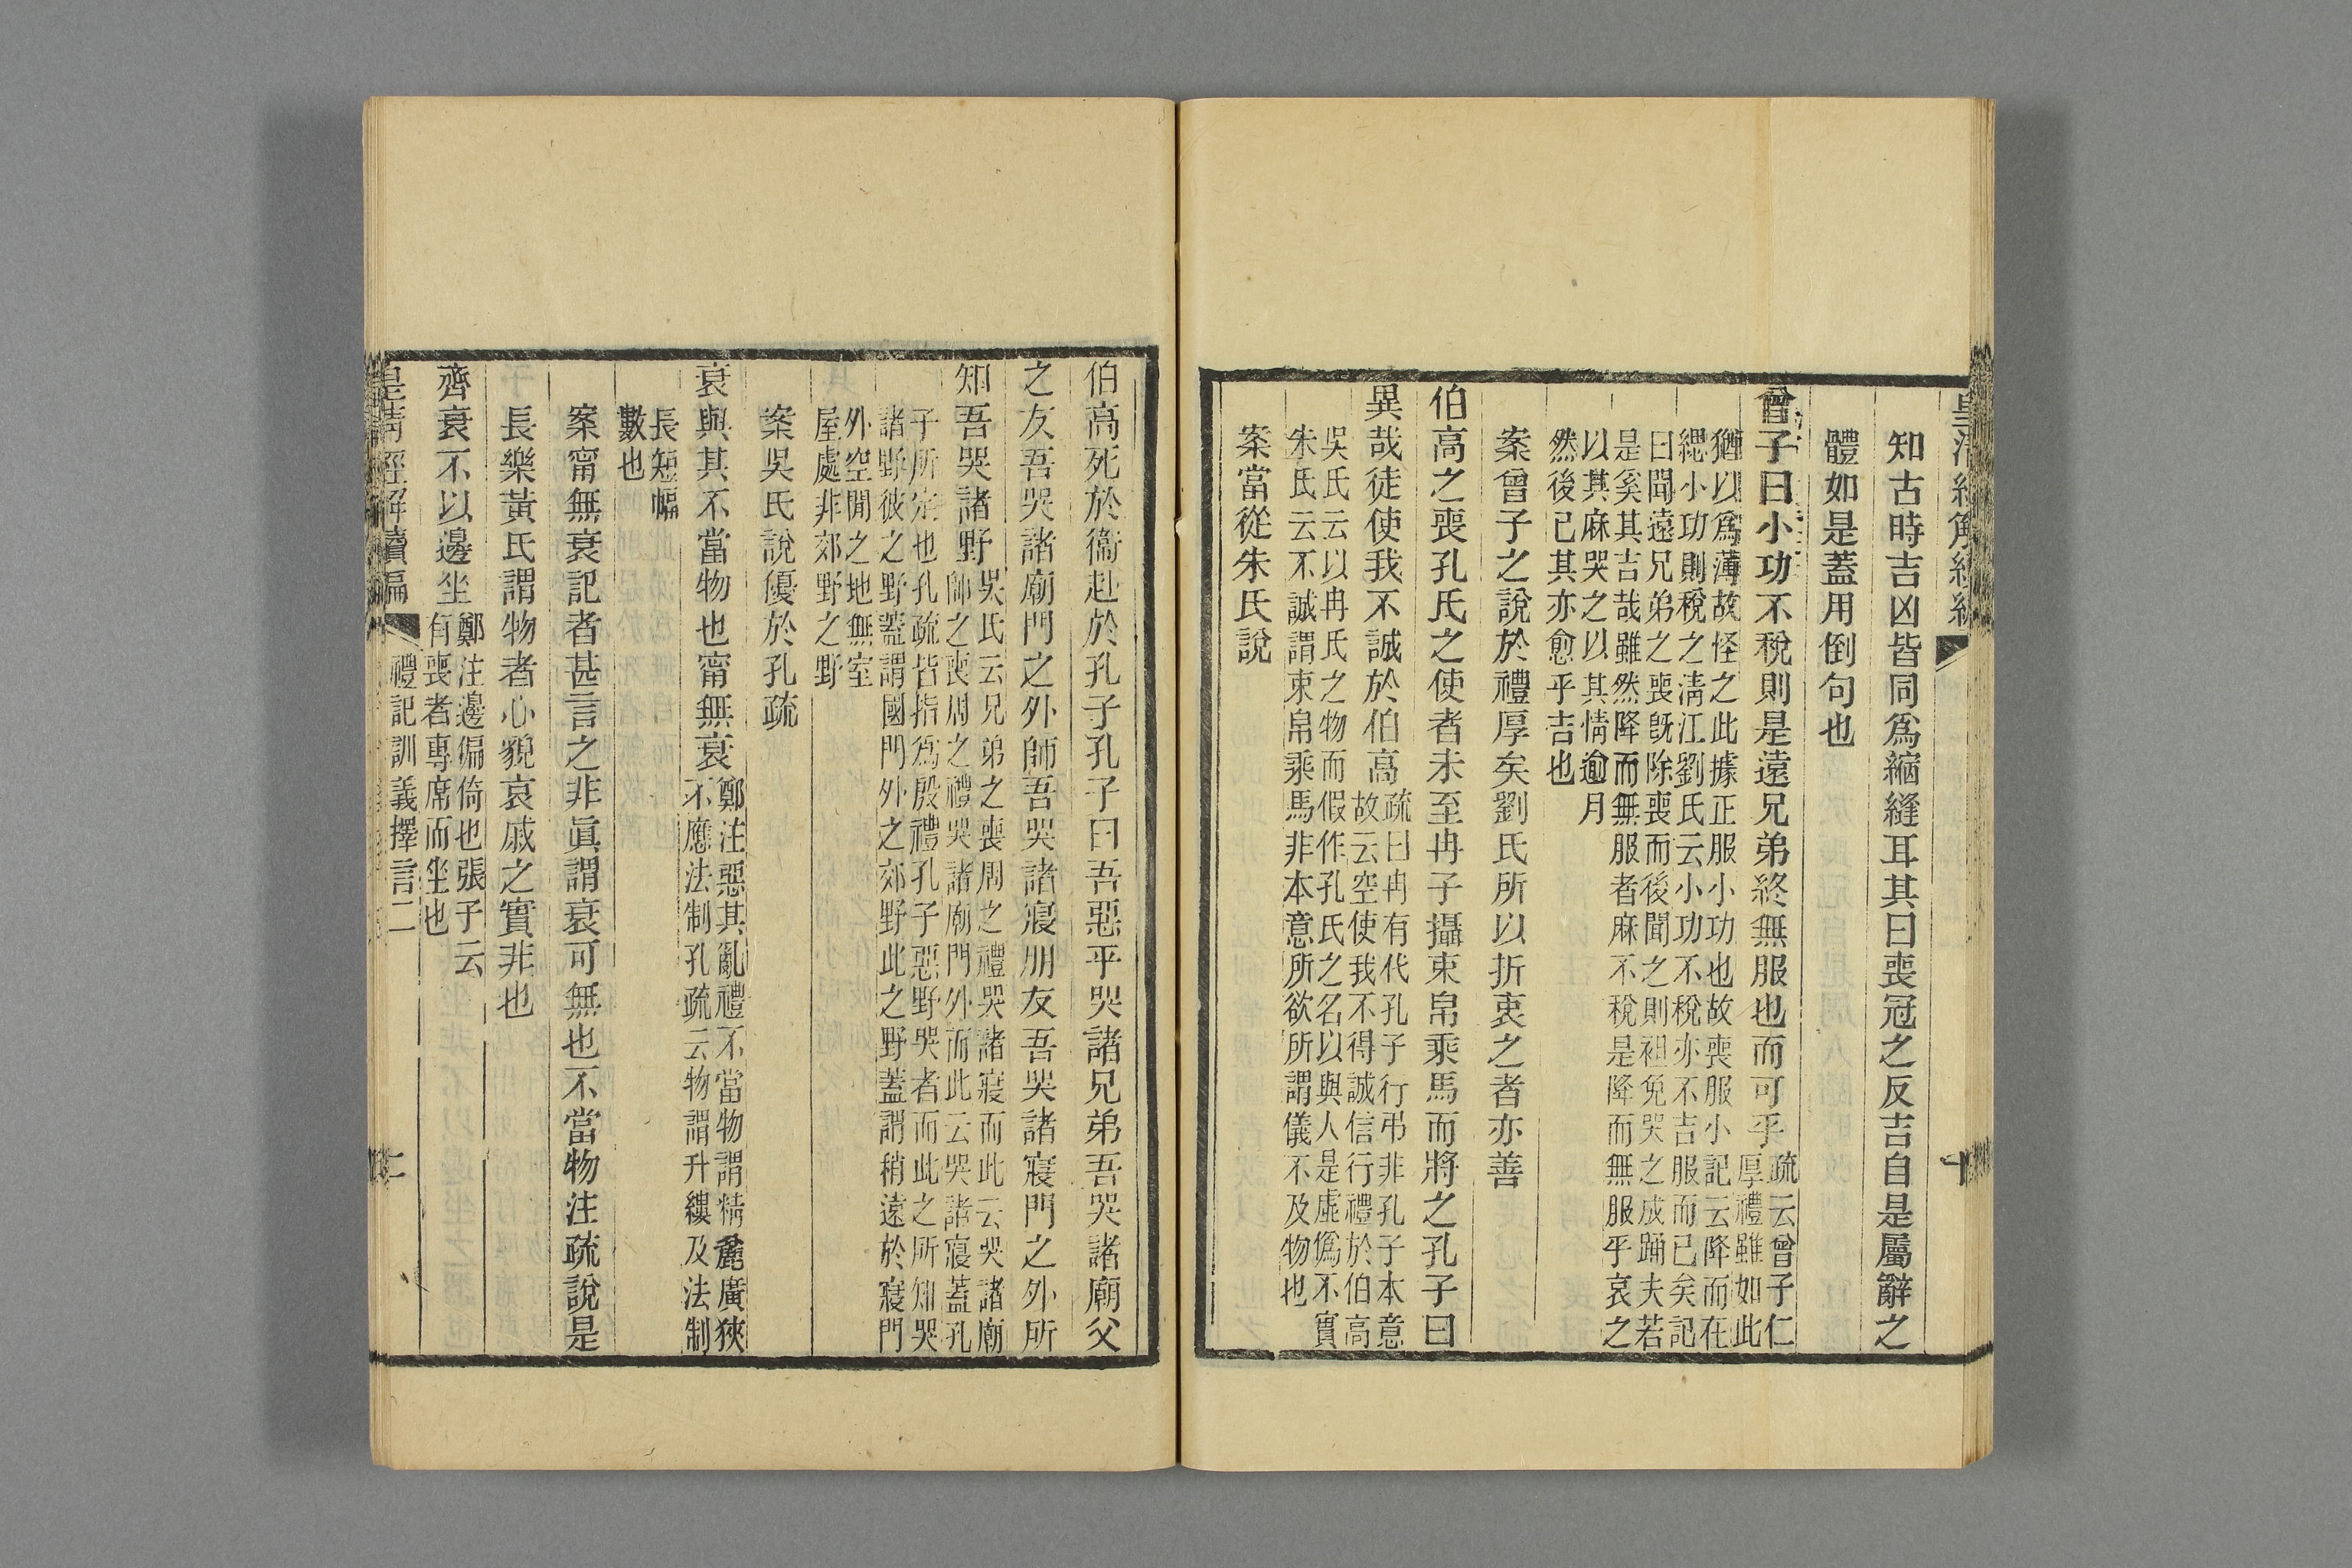 知古時吉凶皆同爲縮縫耳其曰喪冠之反吉自是屬辭之
體如是蓋用倒句也
曾子曰小功不稅則是遠兄弟終無服也而可乎
疏云曾子仁
厚禮雖如此
猶以爲薄故怪之此據正服小功也故喪服小記云降而在
緦小功則稅之淸江劉氏云小功不稅亦不吉服而已矣記
曰聞遠兄弟之喪旣除喪而後聞之則袒免哭之成踊夫若
是奚其吉哉雖然降而無服者麻不稅是降而無服乎哀之
以其麻哭之以其情逾月
然後已其亦愈乎吉也
案曾子之說於禮厚矣劉氏所以折衷之者亦善
伯高之喪孔氏之使者未至冉子攝束帛乘馬而將之孔子曰
異哉徒使我不誠於伯高
疏曰冉有代孔子行弔非孔子本意
故云空使我不得誠信行禮於伯高
吳氏云以冉氏之物而假作孔氏之名以與人是虛僞不實
朱氏云不誠謂束帛乘馬非本意所欲所謂儀不及物也
案當從朱氏說
伯高死於衞赴於孔子孔子曰吾惡乎哭諸兄弟吾哭諸廟父
之友吾哭諸廟門之外師吾哭諸寢朋友吾哭諸寢門之外所
知吾哭諸野
吳氏云兄弟之喪周之禮哭諸寢而此云哭諸廟
師之喪周之禮哭諸廟門外而此云哭諸寢蓋孔
子所定也孔疏皆指爲殷禮孔子惡野哭者而此之所知哭
諸野彼之野蓋謂國門外之郊野此之野蓋謂稍遠於寢門
外空閒之地無室
屋處非郊野之野
案吳氏說優於孔疏
衰與其不當物也甯無衰
鄭注惡其亂禮不當物謂精麤廣狹
不應法制孔疏云物謂升縷及法制
長短幅
數也
案甯無衰記者甚言之非眞謂衰可無也不當物注疏說是
長樂黃氏謂物者心貌哀戚之實非也
齊衰不以邊坐
鄭注邊偏倚也張子云
有喪者專席而坐也
皇淸經解續編
禮記訓義擇言二